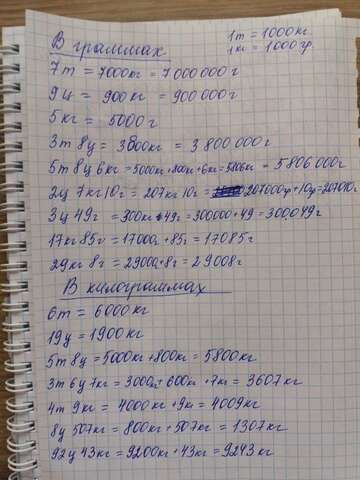 В граммах
1т = 1000кг.
1кг = 1000гр.
7т = 7000кг = 7 000 000г
9ц = 900кг = 900 000г
5кг = 5000г
3т 8ц = 3800кг = 3 800 000г
5т 8ц 6кг = 5000кг + 800кг + 6кг = 5806кг = 5 806 000г
2ц 7кг 10г = 207кг 10г = 207000гр + 10гр = 207010г
3ц 49г = 300кг + 49г = 300000 + 49 = 300.049г
17кг 85г = 17000г + 85г = 17085г
29кг 8г = 29000г + 8г = 29008г
В килограммах
6т = 6000кг
19ц = 1900кг
5т 8ц = 5000кг + 800кг = 5800кг
3т 6ц 7кг = 3000кг + 600кг + 7кг = 3607кг
4т 9кг = 4000кг + 9кг = 4009кг
8ц 507кг = 800кг + 507кг = 1307кг
92ц 43кг = 9200кг + 43кг = 9243кг